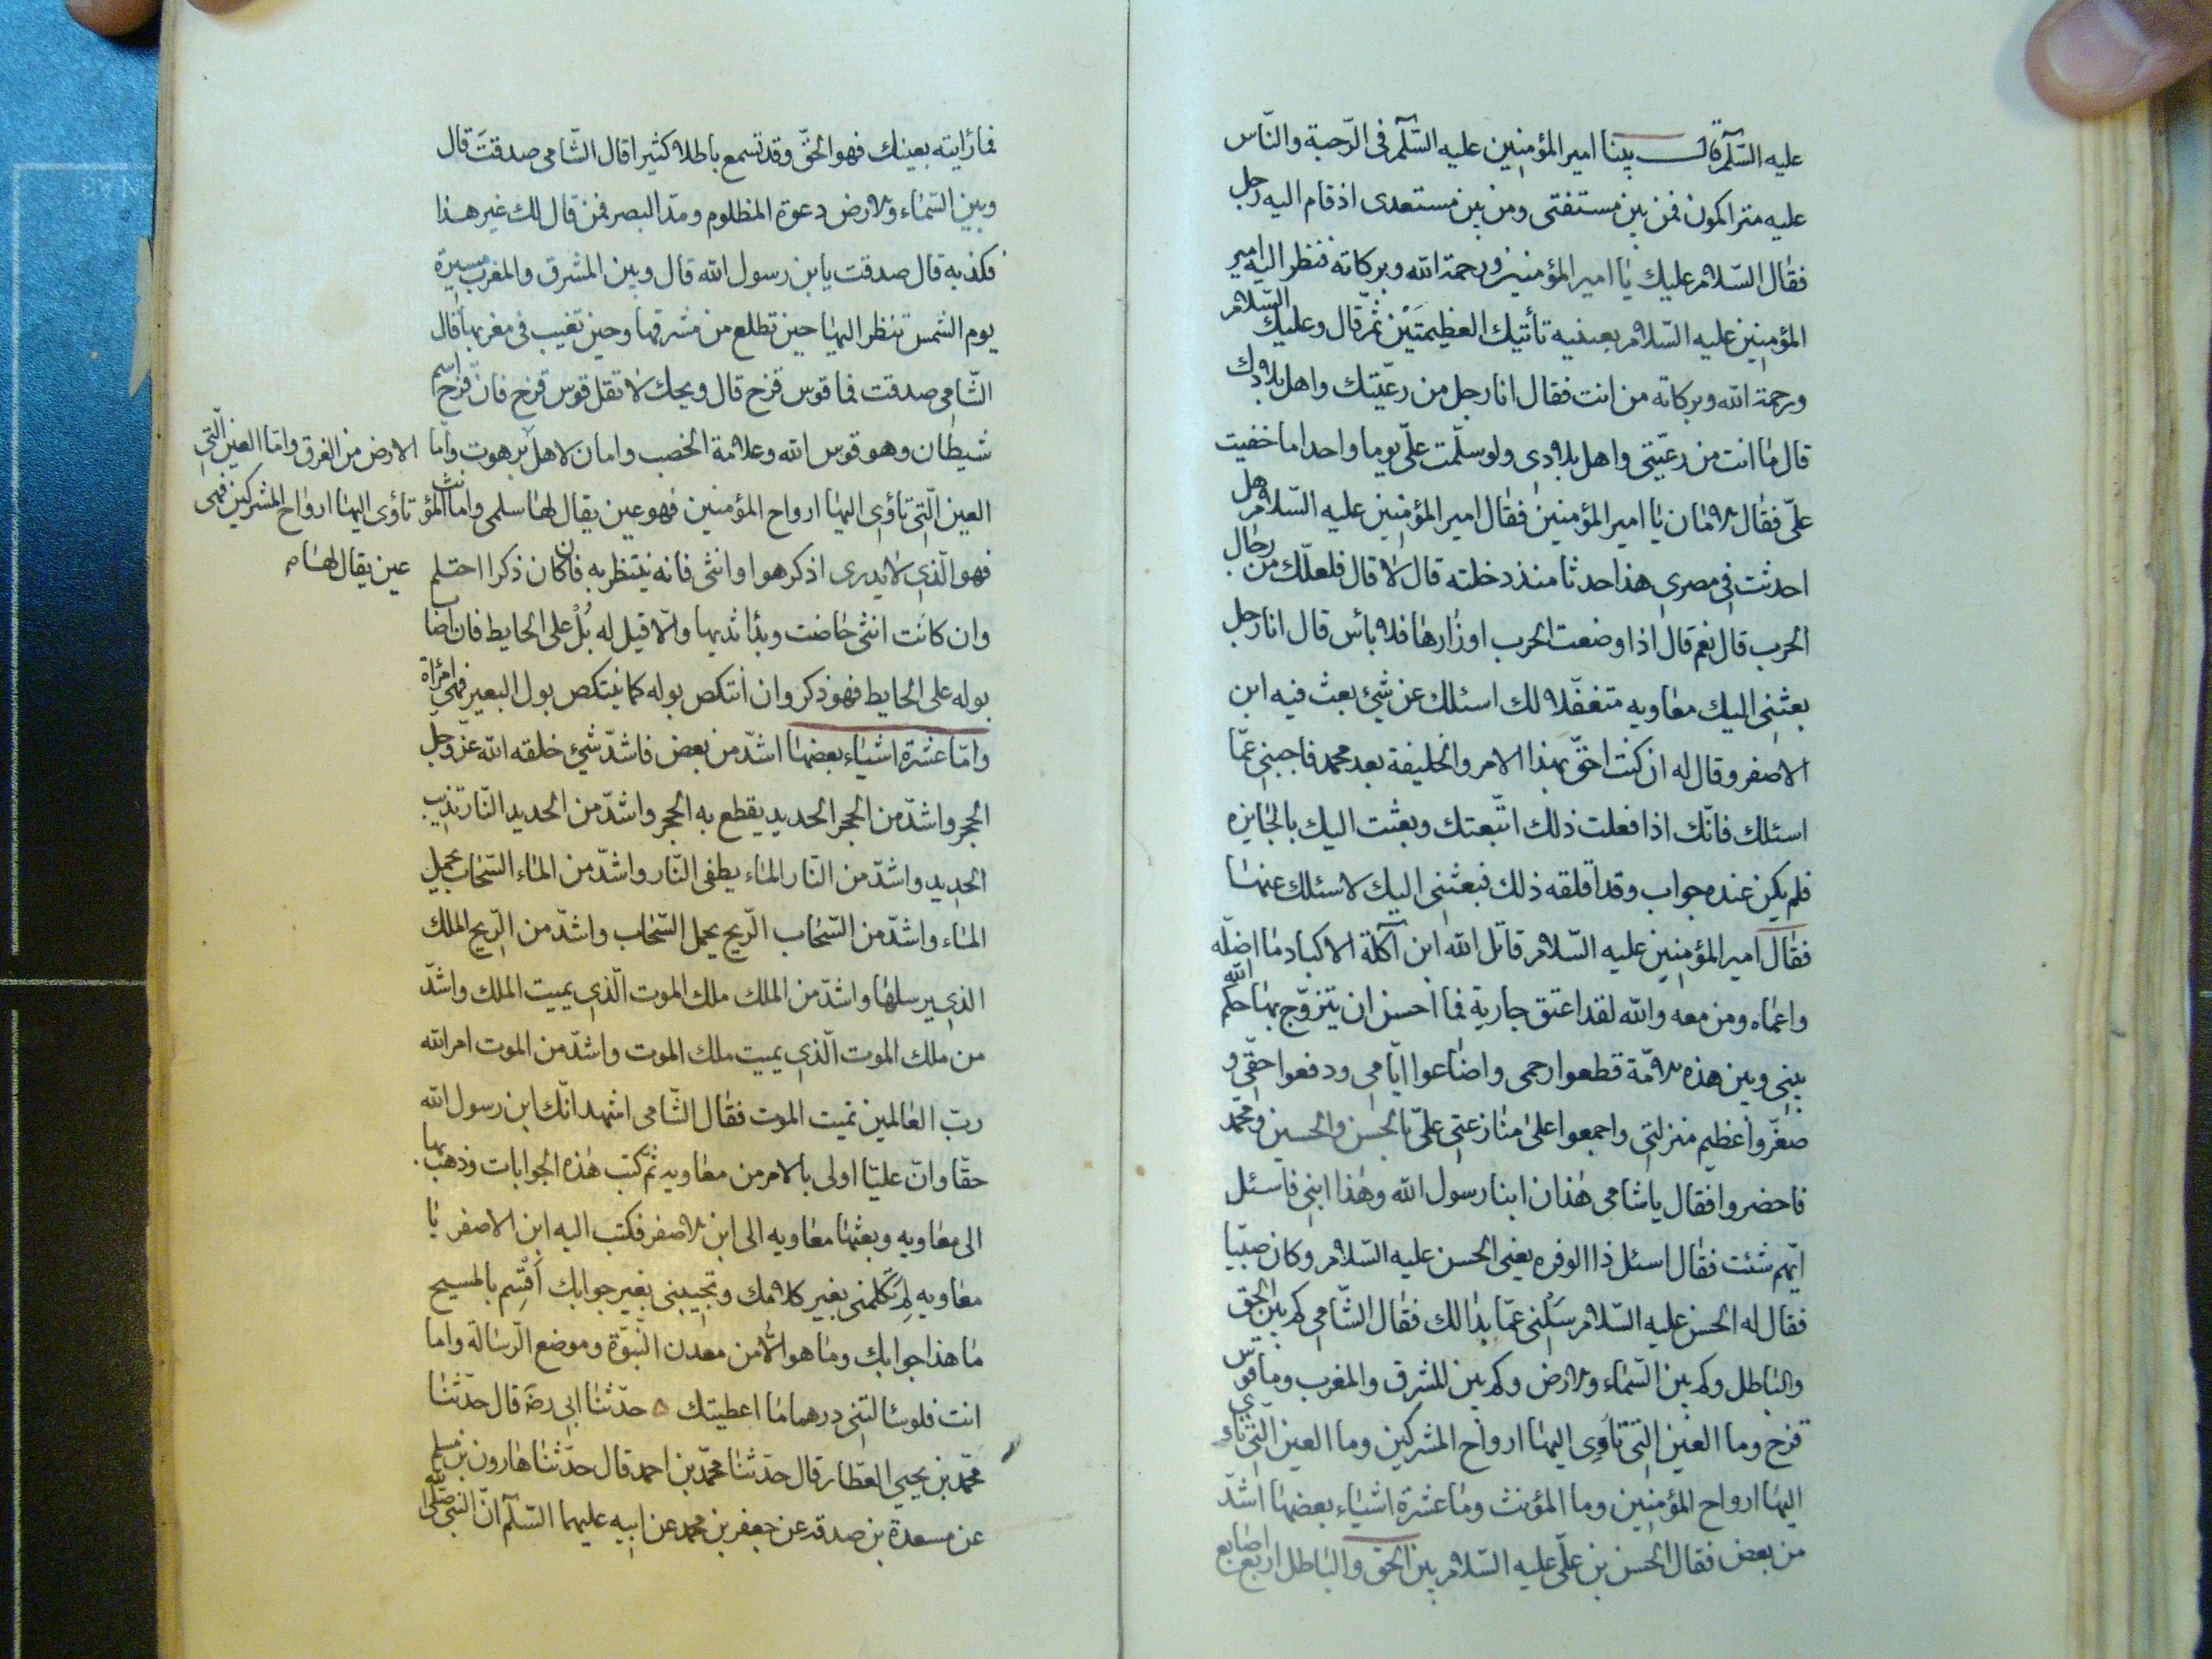 عليه السّلم قال بينا امير المؤمنين عليه السّلم فى الرّحبة والنّاس
عليه متراكمون فمن بين مستفتى ومن بين مستعدى اذ قام اليه رجل
فقال السّلام عليك يا امير المؤمنين ورحمة الله وبركاته فنظر اليه امير
المؤمنين عليه السّلام بعينيه تأتيك العظيمتين ثمّ قال وعليك السّلام
ورحمة الله وبركاته من انت فقال انا رجل من رعيّتك واهل بلادك
قال ما انت من رعيّتى واهل بلادى ولو سلّمت علىّ يوما واحدا ما خفيت
علىّ فقال الامان يا امير المؤمنين فقال امير المؤمنين عليه السّلام هل
احدثت فى مصرى هذا حدثا منذ دخلته قال لا قال فلعلّك من رجال
الحرب قال نعم قال اذا وضعت الحرب اوزارها فلا بأس قال انا رجل
بعثنى اليك معاويه متغفّلا لك اسئلك عن شئ بعث فيه ابن
الاصفر وقال له ان كنت احقّ بهذا الامر والخليفة بعد محمد فاجبنى عمّا
اسئلك فانّك اذا فعلت ذلك اتّبعتك وبعثت اليك بالجايزه
فلم يكن عنده جواب وقد اقلقه ذلك فبعثنى اليك لاسئلك عنها
فقال امير المؤمنين عليه السّلام قاتل الله ابن آكلة الاكباد ما اضلّه
واعماه ومن معه والله لقد اعتق جارية فما احسن ان يتزوّج بها حكم الله
بينى وبين هذه الامّة قطعوا رحمى واضاعوا ايّامى ودفعوا حقّى و
صغّروا عظيم منزلتى واجمعوا على منازعتى علىّ بالحسن والحسين ومحمّد
فاحضروا فقال يا شامى هذان ابنا رسول الله وهذا ابنى فاسئل
ايّهم شئت فقال اسئل ذا الوفره يعنى الحسن عليه السّلام وكان صبيّا
فقال له الحسن عليه السّلام سَلْنى عمّا بدا لك فقال الشّامى كم بين الحق
والباطل وكم بين السّماء والارض وكم بين المشرق والمغرب وما قوس
قزح وما العين الّتى تأوى اليها ارواح المشركين وما العين الّتى تأوى
اليها ارواح المؤمنين وما المؤنث وما عشرة اشياء بعضها اشدّ
من بعض فقال الحسن بن علىّ عليه السّلام بين الحق والباطل اربع اصابع
فما رأيته بعينك فهو الحقّ وقد تسمع باطلا كثيرا قال الشّامى صدقتَ قال
وبين السّماء والارض دعوة المظلوم ومدّ البصر فمن قال لك غير هذا
فكذبه قال صدقت يا بن رسول الله قال وبين المشرق والمغرب مسيرة
يوم الشمس تنظر اليها حين تطلع من مشرقها وحين تغيب فى مغربها قال
الشّامى صدقت فما قوس قزح قال ويحك لا تقل قوس قزح فانّ قزح اسم
شيطان وهو قوس الله وعلامة الخصب وامان لاهل الارض من الغرق وامّا العين الّتى
تأوى اليها ارواح المشركين فهى
عين يقال لها برهوت وامّا
العين الّتى تأوى اليها ارواح المؤمنين فهو عين يقال لها سلمى واما المؤنث
فهو الّذى لا يدرى اذكر هو او انثى فانه ينتظر به فان كان ذكرا احتلم
وان كانت انثى حاضت وبدأ ثديها والّا قيل له بُلْ على الحايط فان اصا
بوله على الحايط فهو ذكر وان انتكص بوله كما ينتكص بول البعير فهى امرأة
وامّا عشرة اشياء بعضها اشدّ من بعض فاشدّ شئ خلقه الله عزّ وجل
الحجر واشدّ من الحجر الحديد يقطع به الحجر واشدّ من الحديد النّار تذيب
الحديد واشدّ من النّار الماء يطفى النّار واشدّ من الماء السّحاب يحمل
الماء واشدّ من السّحاب الرّيح يحمل السّحاب واشدّ من الرّيح الملك
الذى يرسلها واشدّ من الملك ملك الموت الّذى يميت الملك واشدّ
من ملك الموت الّذى يميت ملك الموت واشدّ من الموت امر الله
ربّ العالمين تميت الموت فقال الشّامى اشهد انّك ابن رسول الله
حقّا وانّ عليّا اولى بالامر من معاويه ثمّ كتب هذه الجوابات وذهب بها
الى معاويه وبعثها معاويه الى ابن الاصفر فكتب اليه ابن الاصفر يا
معاويه لِمَ تكلّمنى بغير كلامك وتجيبنى بغير جوابك اُقْسِم بالمسيح
ما هذا جوابك وما هو الّا من معدن النّبوّة وموضع الرّسالة واما
انت فلو سئالتنى درهما ما اعطيتك ۵ حدّثنا ابى رضه قال حدّثنا
محمّد بن يحيى العطّار قال حدّثنا محمّد بن احمد قال حدّثنا هارون بن مسلم
عن مسعدة بن صدقه عن جعفر بن محمد عن ابيه عليهما السّلم انّ النّبى صلّى الله